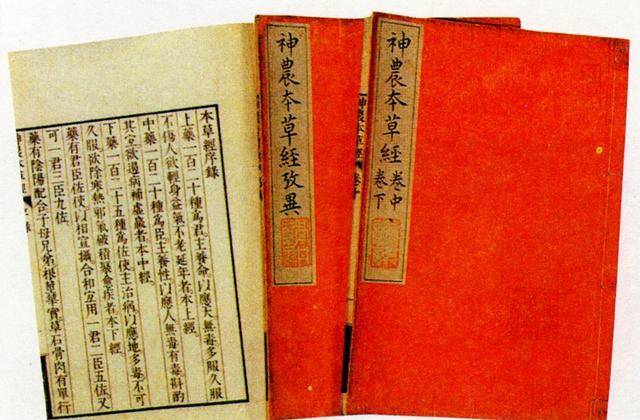 神農本草經
卷中
卷下
神農本草經攷異
本草經序錄
上藥一百二十種爲君主養命以應天無毒多服久服
不傷人欲輕身益氣不老延年者本上經
中藥一百二十種爲臣主養性以應人無毒有毒斟酌
其宜欲遏病補虛羸者本中經
下藥一百二十五種爲佐使主治病以應地多毒不可
久服欲除寒熱邪氣破積聚愈疾者本下經
藥有君臣佐使以相宣攝合和宜用一君二臣五佐又
可一君三臣九佐
藥有陰陽配合子母兄弟根莖華實草石骨肉有單行
神農本草經